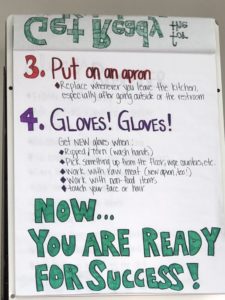 Get Ready
3. Put on an apron
◆Replace whenever you leave the kitchen,
especially after going outside or the restroom
4. Gloves! Gloves!
Get NEW gloves when:
◆Ripped/torn (wash hands)
◆Pick something up from the floor, wipe counters, etc.
◆Work with raw meat (new apron, too!)
◆Work with non-food items
◆touch your face or hair
NOW...
YOU ARE READY
FOR SUCCESS!